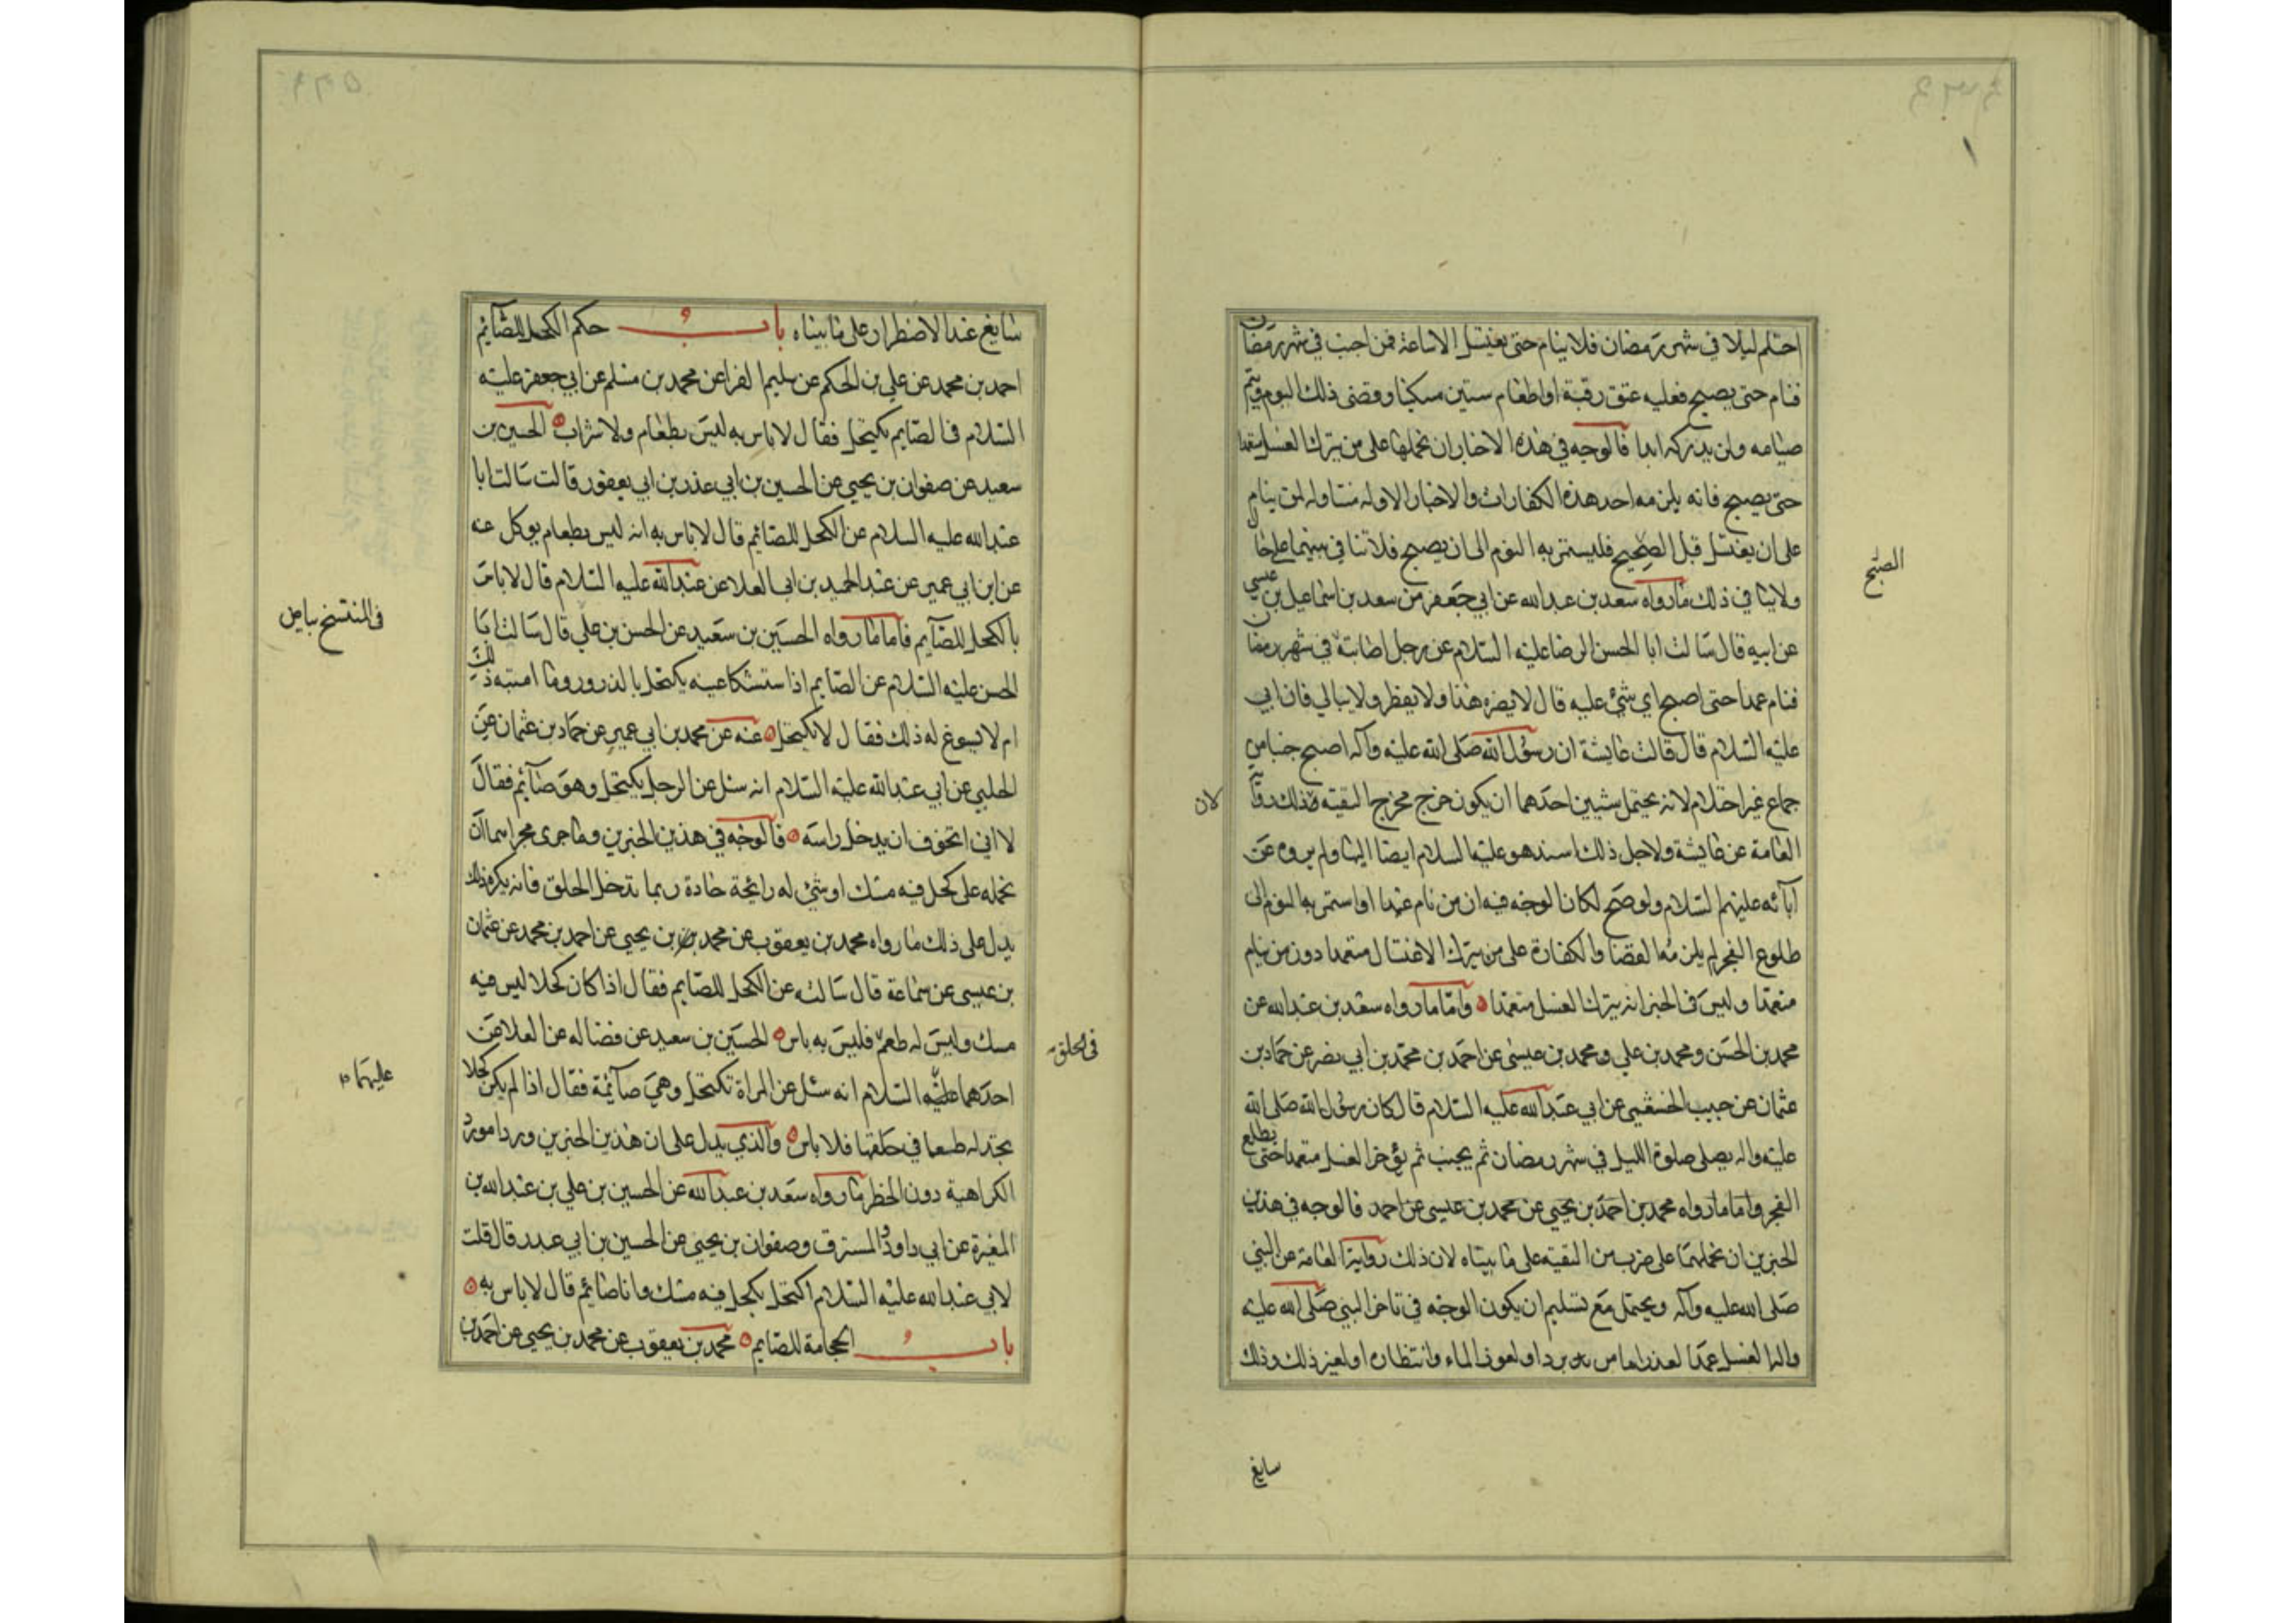 احتلم ليلا في شهر رمضان فلا ينام حتى يغتسل الا ساعة فمن اجنب في شهر رمضان
فنام حتى يصبح فعليه عتق رقبة او اطعام ستين مسكينا وقضى ذلك اليوم ويتم
صيامه ولن يدركه ابدا فالوجه في هذه الاخبار ان نحملها على من يترك الغسل متعمدا
حتى يصبح فانه يلزمه احد هذه الكفارات والاخبار الاوله متناوله لمن ينام
على ان يغتسل قبل الصحيح فليستمر به النوم الى ان يصبح فلا تنافي بينهما على حال
الصبح
ولا ينافي ذلك ما رواه سعد بن عبد الله عن ابي جعفر من سعد بن اسماعيل بن عيسى
عن ابيه قال سالت ابا الحسن الرضا عليه السلام عن رجل اصابته في شهر رمضان
فنام عمدا حتى اصبح اي شئ عليه قال لا يضره هذا ولا يفطر ولا يبالي فان ابي
عليه السلام قال قالت عايشة ان رسول الله صلى الله عليه وآله اصبح جنبا من
جماع غير احتلام لانه يحتمل شيين احدهما ان يكون خرج مخرج التقيه وذلك رواية
لان
العامة عن عايشة ولاجل ذلك اسنده هو عليه السلام ايضا اليها ولم يروه عن
آبائه عليهم السلام ولو صح لكان الوجه فيه ان من نام عمدا او استمر به النوم الى
طلوع الفجر لم يلزمه القضا والكفارة على من يترك الاغتسال متعمدا دون من ينام
متعمدا وليس في الخبر انه يترك الغسل متعمدا واما ما رواه سعد بن عبد الله عن
محمد بن الحسن ومحمد بن علي ومحمد بن عيسى عن احمد بن محمد بن ابي نصر عن حماد بن
عثمان عن حبيب الخثعمي عن ابي عبد الله عليه السلام قال كان رسول الله صلى الله
عليه واله يصلى صلوة الليل في شهر رمضان ثم يجنب ثم يؤخر الغسل متعمدا حتى يطلع
الفجر واما ما رواه محمد بن احمد بن يحيى عن محمد بن عيسى عن احمد فالوجه في هذين
الخبرين ان نحملهما على ضرب من التقيه على ما بيناه لان ذلك رواية العامة عن النبي
صلى الله عليه وآله ويحتمل مع تسليم ان يكون الوجه في تاخر النبي صلى الله عليه
واله الغسل عمدا لعذر اما من برد او لعوز الماء وانتظاره او لغير ذلك وذلك
سايغ
سايغ عند الاضطرار على ما بيناه باب حكم الكحل للصآيم
احمد بن محمد عن علي بن الحكم عن سليم الفرا عن محمد بن مسلم عن ابي جعفر عليه
السلام في الصايم يكتحل فقال لا باس به ليس بطعام ولا شراب الحسين بن
سعيد عن صفوان بن يحيى عن الحسين بن ابي عذر بن ابي يعفور قالت سالت ابا
عبد الله عليه السلام عن الكحل للصائم قال لا باس به انه ليس بطعام يوكل عنه
عن ابن ابي عمير عن عبد الحميد بن ابي العلا عن عبد الله عليه السلام قال لا باس
في المنتسخ بياض
بالكحل للصآيم فاما ما رواه الحسين بن سعيد عن الحسن بن علي قال سالت ابا
الحسن عليه السلام عن الصايم اذا ستشكا عينه يكتحل بالذرور وما اشبه ذلك
ام لا يسوغ له ذلك فقال لا يكتحل عنه عن محمد بن ابي عمير عن حماد بن عثمان عن
الحلبي عن ابي عبد الله عليه السلام انه سئل عن الرجل يكتحل وهو صآئم فقال
لا اني اتخوف ان يدخل راسه فالوجه في هذين الخبرين وما جرى مجراهما ان
نحمله على كحل فيه مسك او شئ له رائحة حادة ربما تدخل الحلق فانه يكره ذلك
يدل على ذلك ما رواه محمد بن يعقوب عن محمد بن يحيى عن احمد بن محمد عن عثمان
بن عيسى عن سماعة قال سالته عن الكحل للصايم فقال اذا كان كحلا ليس فيه
مسك وليس له طعم فليس به باس الحسين بن سعيد عن فضاله عن العلا عن
في الحلق
احدهما عليه السلام انه سئل عن المراة تكتحل وهي صآئمة فقال اذا لم يكن كحلا
عليهما
تجد له طعما في حلقها فلا باس والذي يدل على ان هذين الخبرين وردا مورد
الكراهية دون الحظر ما رواه سعد بن عبد الله عن الحسين بن علي بن عبد الله بن
المغيرة عن ابي داود المسترق وصفوان بن يحيى عن الحسين بن ابي عبدر قال قلت
لابي عبد الله عليه السلام اكتحل بكحل فيه مسك وانا صائم قال لا باس به
باب الحجامة للصايم محمد بن يعقوب عن محمد بن يحيى عن احمد بن